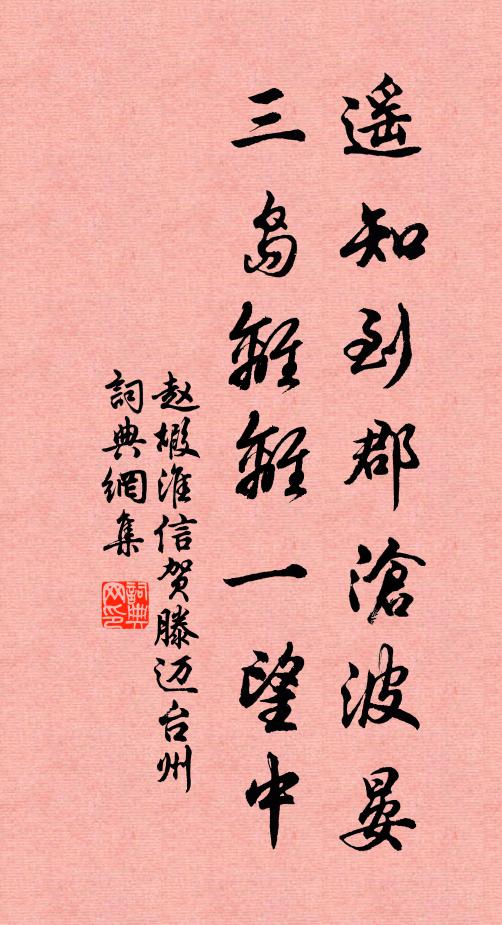 遥知到郡滄波晏
三島離離一望中
赵嘏淮信贺滕迈台州
詞典網集
詞典网印